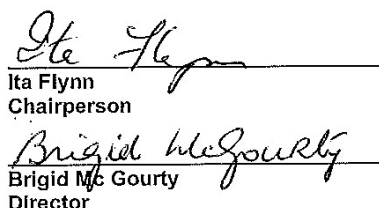 Ita Flynn
Ita Flynn
Chairperson
Brigid McGourty
Brigid Mc Gourty
Director